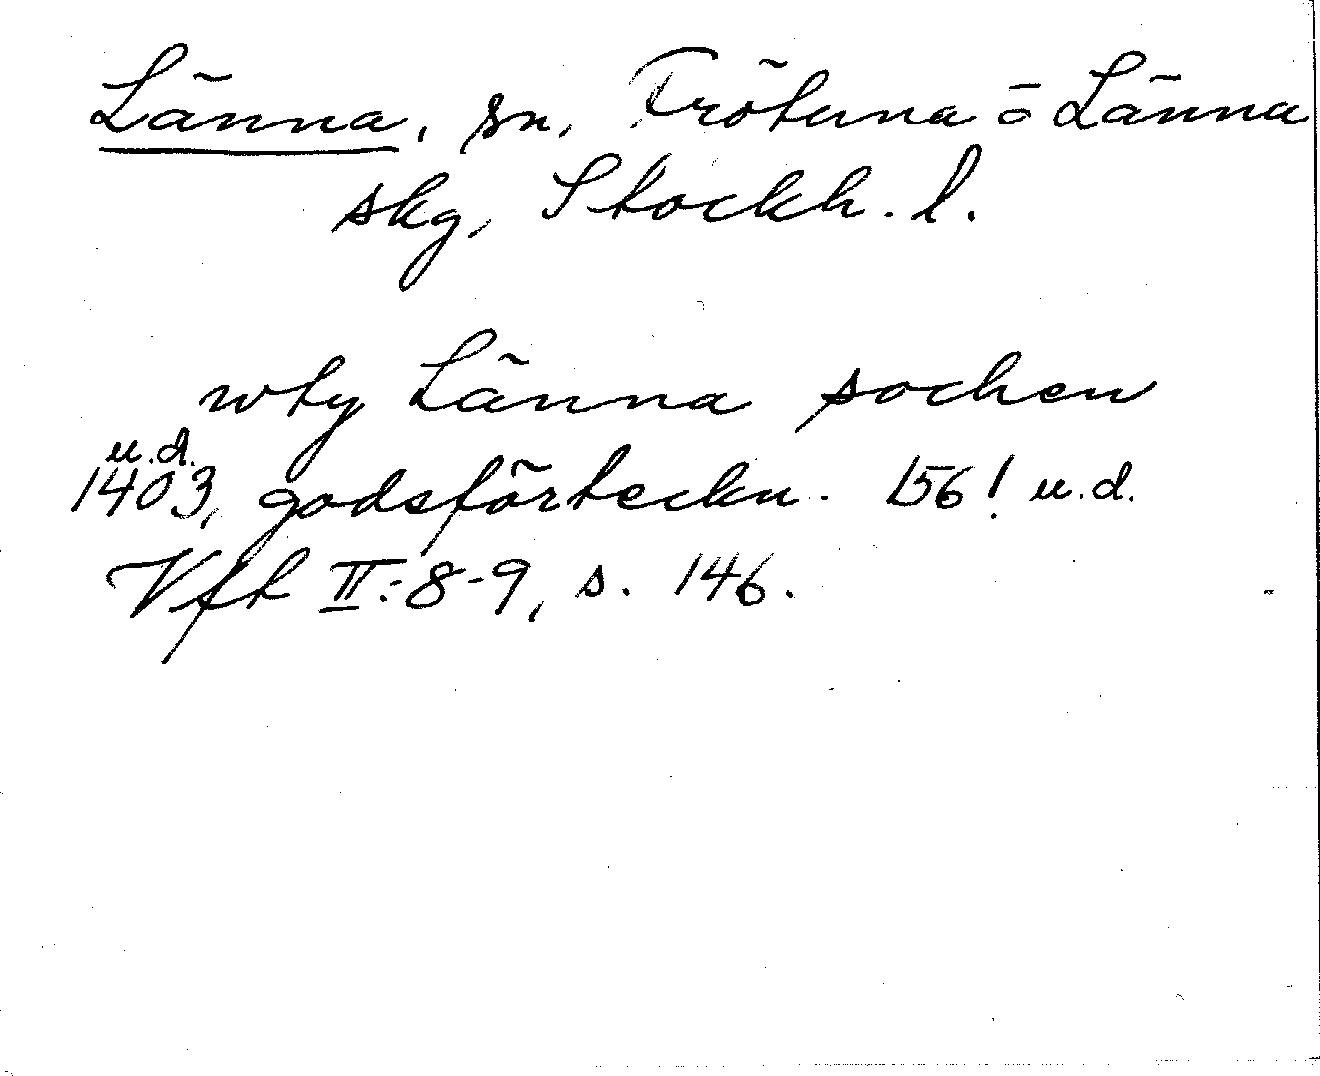 Länna, sn, Frötuna o Länna
skg, Stockh. l.
wty Länna sochen
u.d.
1403, godsförteckn. 156! u.d.
Vfk II:8-9, s. 146.